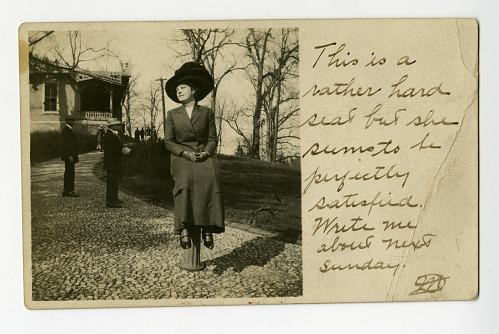 This is a
rather hard
seat but she
seems to be
perfectly
satisfied.
Write me
about next
Sunday.